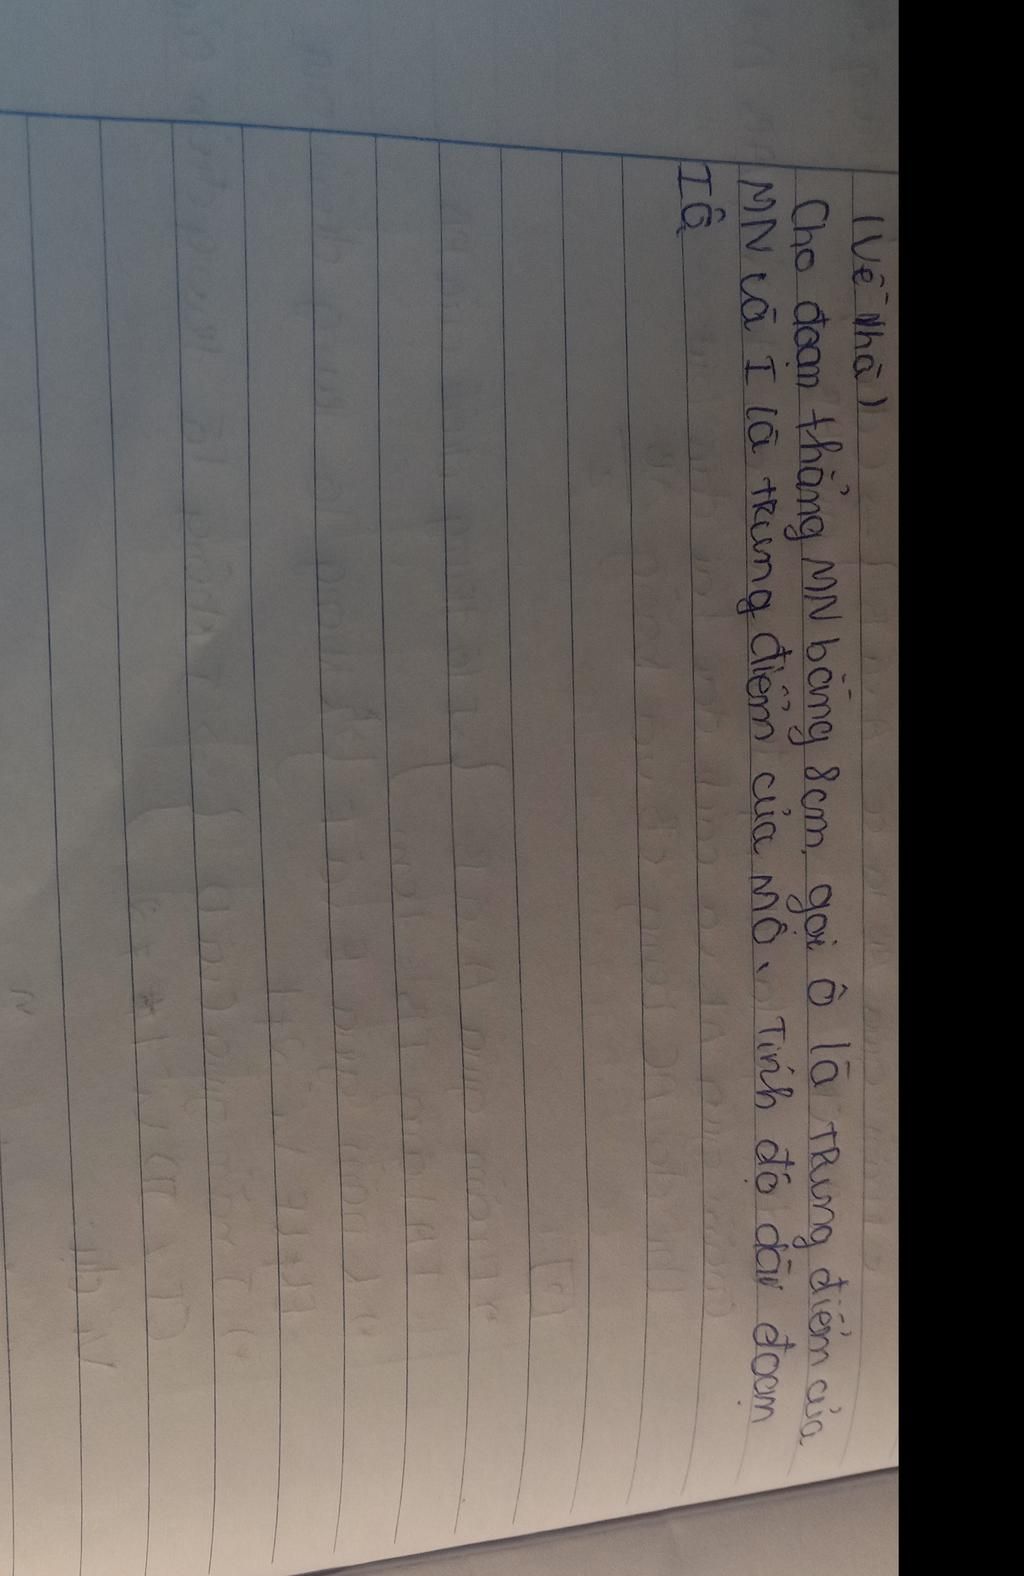 (Về nhà)
Cho đoạn thẳng MN bằng 8cm, gọi ô là trung điểm của
MN và I là trung điểm của MÔ. Tính độ dài đoạn
IÔ